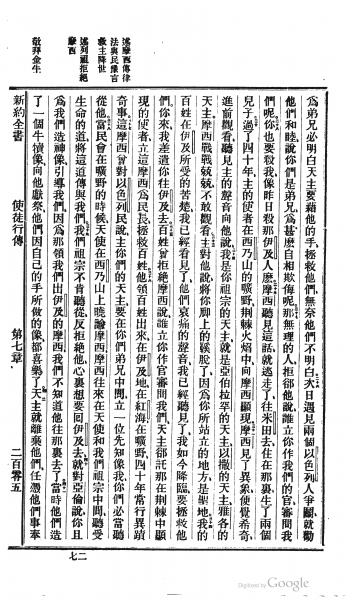 爲弟兄必明白天主要藉他的手拯救他們無奈他們不明白次日遇見兩個以色列人爭鬭就勸
他們和睦說你們是弟兄爲甚麽自相欺侮呢那無理的人拒郤他說誰立你作我們的官審問我
們呢你也要殺我像昨日殺那伊及人麽摩西聽見這話就逃走了往米田去住在那裏生了兩個
兒子過了四十年主的使者在西乃山的曠野荆棘火焰中向摩西顯現摩西見了異象便覺希奇
進前觀看聽見主的聲音向他說我是你祖宗的天主就是亞伯拉罕的天主以撒的天主雅各的
天主摩西戰戰兢兢不敢觀看主對他說將你脚上的鞋脫了因爲你所站立的地方是聖地我的
百姓在伊及所受的苦楚我已經看見了他們哀痛的聲音我已經聽見了我如今降臨要拯救他
們你來我差遣你往伊及去百姓曾拒絕摩西說誰立你作官審問我們天主郤託那在荆棘中顯
現的使者立這摩西爲民長拯救百姓他領百姓出來在伊及地在紅海在曠野四十年常行異蹟
奇事這摩西曾對以色列民說主你們的天主要在你們弟兄中間立一位先知像我你們必當聽
從他當民會在曠野的時候天使在西乃山上曉諭摩西摩西往來在天使和我們祖宗中間聽受
生命的道將這道傳與我們我們祖宗不肯聽從反拒絕他心裏想要回伊及去就對亞倫說你且
爲我們造神像引導我們因爲那領我們出伊及的摩西我們不知道他往那裏去了當時他們造
了一個牛犢像向他獻祭他們因自己的手所做的像都喜樂了天主就離棄他們任憑他們事奉
述摩西傳律
法與民豫言
救主降世
述列祖拒絕
摩西
敬拜金牛
新約全書 使徒行傳 第七章 二百零五
七二
Digitized by Google